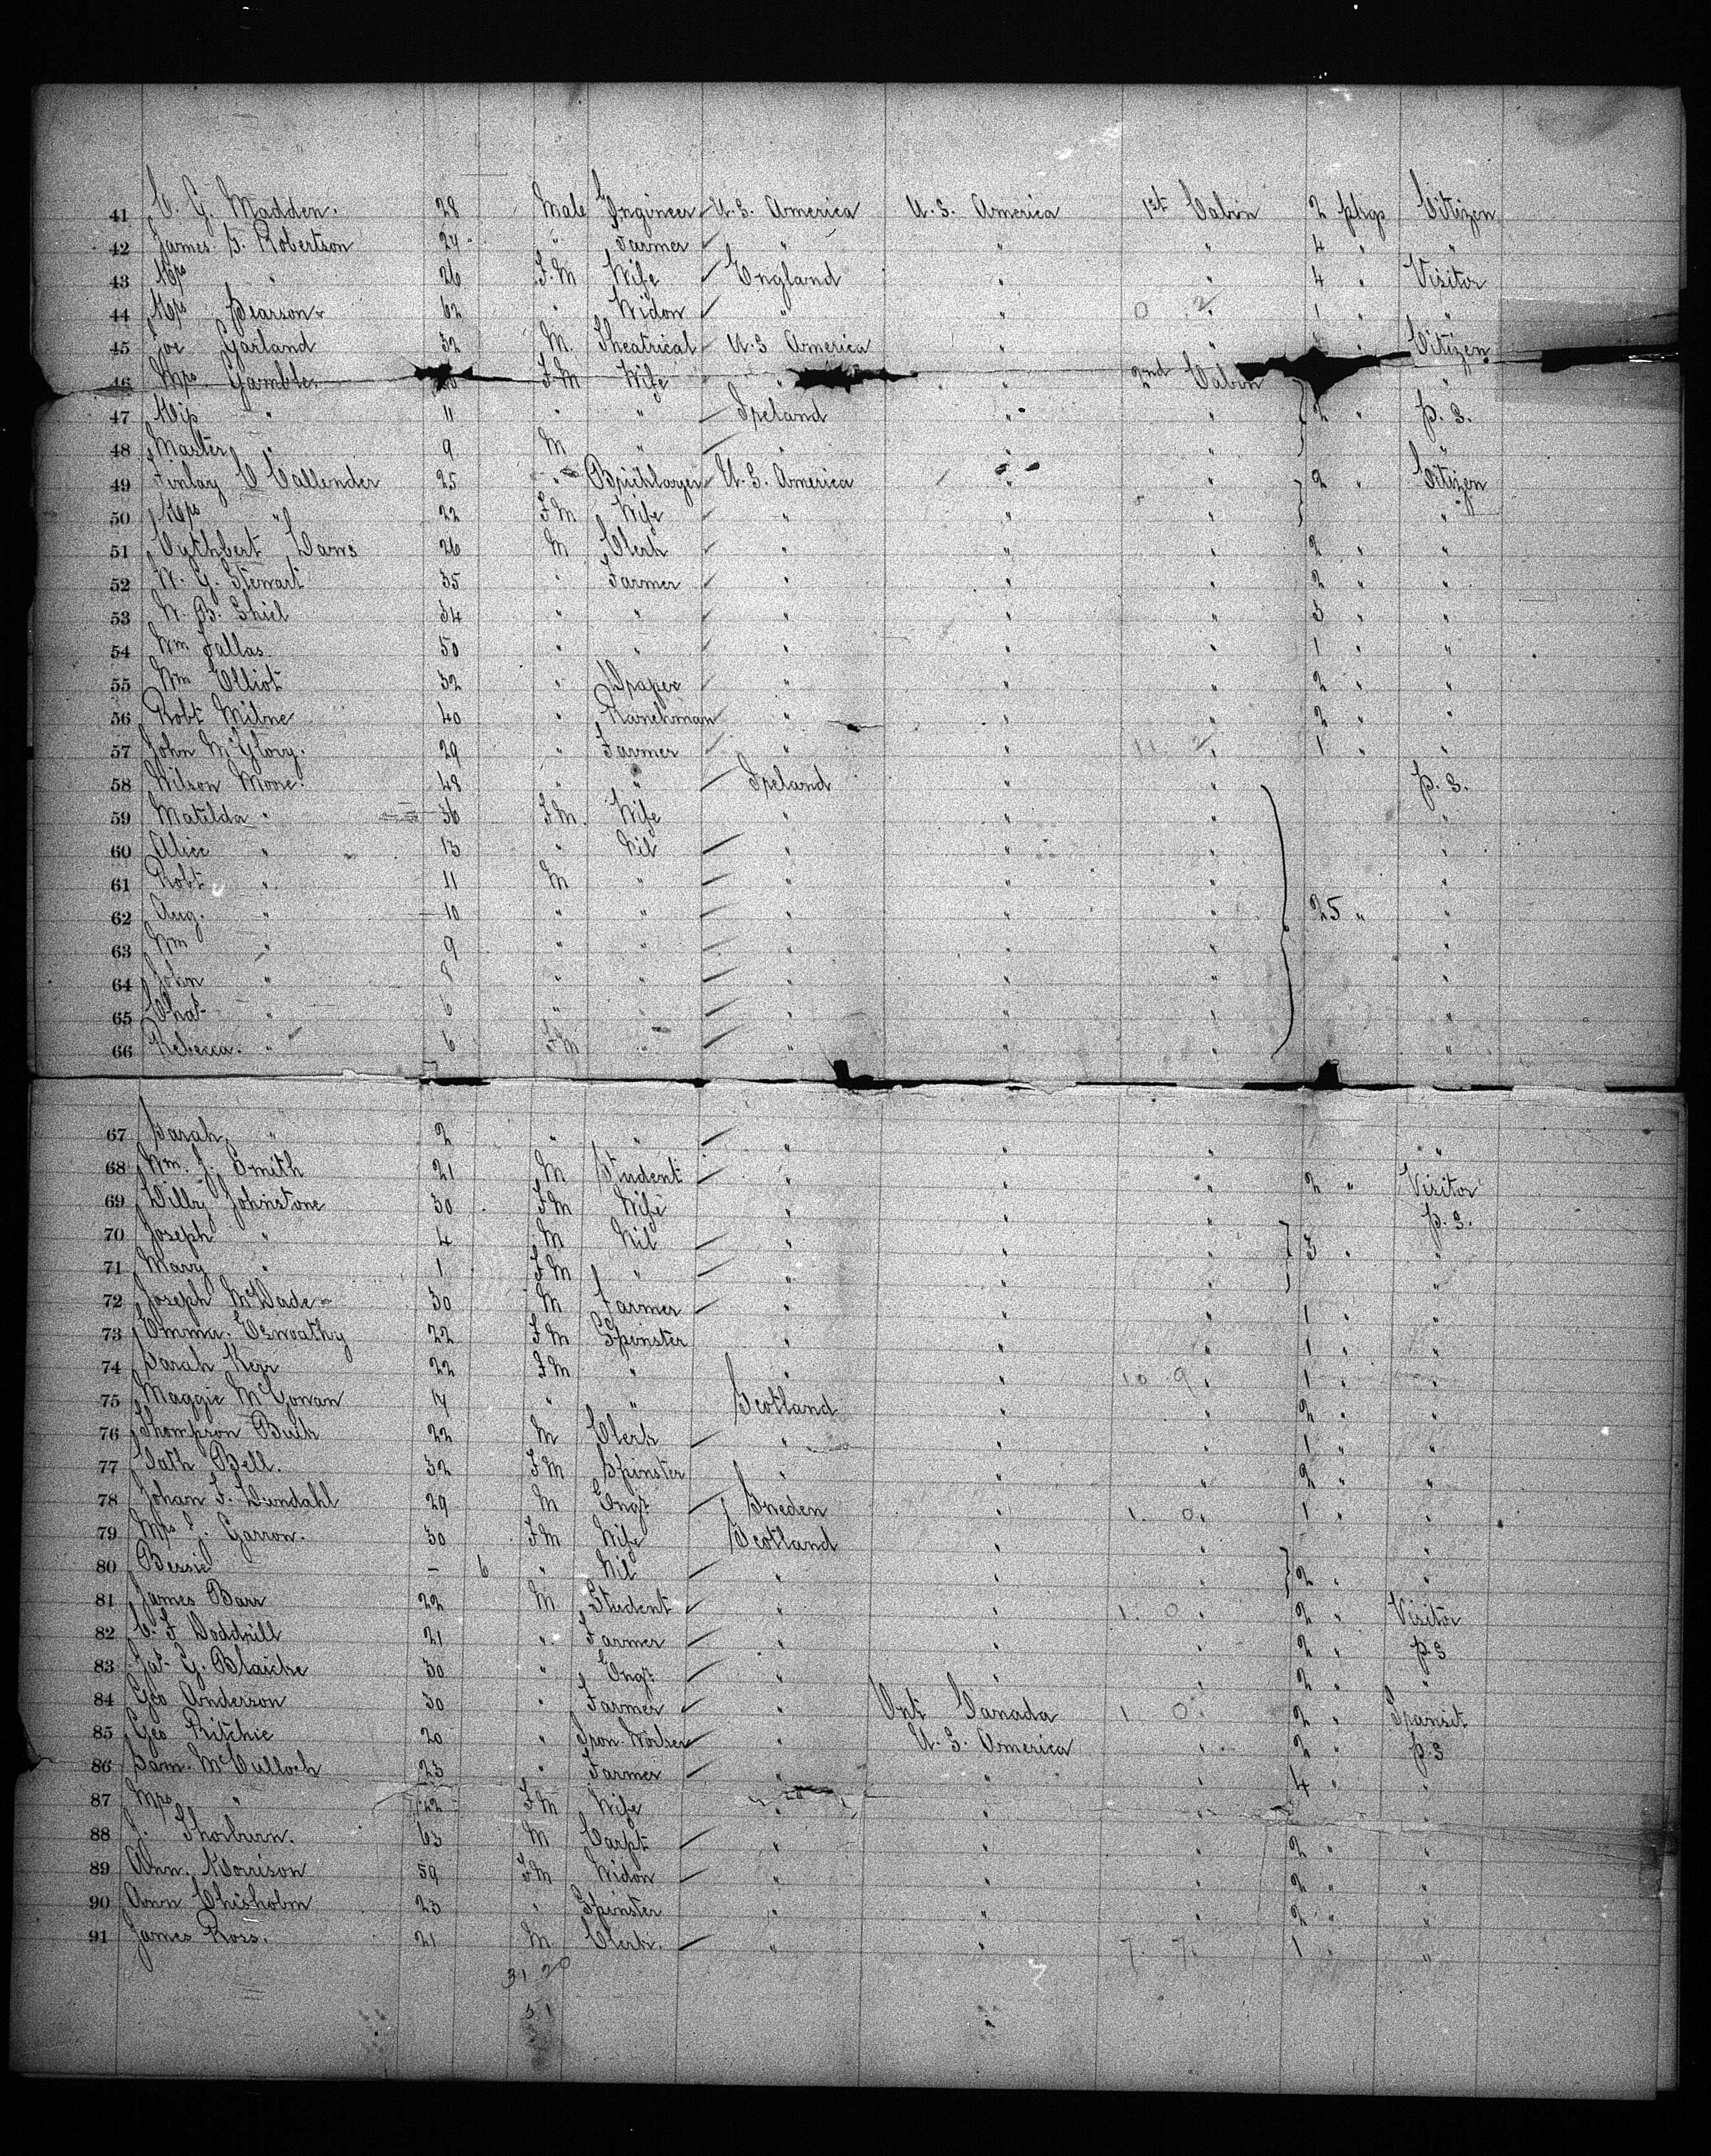 41 C. G. Madden. 28 Male Engineer U.S. America U.S. America 1st Cabin 2 pkgs Citizen
42 James G. Robertson 24 " Farmer " " " 4 " "
43 Mrs " 26 F.M Wife England " " 4 " Visitor
44 Mrs Pearson 62 " Widow " " " 1 " "
45 Joe Garland 32 M. Theatrical U.S America " " " Citizen
46 Mrs Gamble F.M Wife " " 2nd Cabin "
47 Miss " 11 " " Ireland " " 2 " P.S.
48 Master " 9 M " " " " "
49 Finlay C Callender 25 " Bricklayer U.S. America " " 2 " Citizen
50 Mrs " 22 F M Wife " " " "
51 Cuthbert Daws 26 M Clerk " " " 2 " "
52 W. G. Stewart 35 " Farmer " " " 2 " "
53 W. B. Shiel 34 " " " " " 3 " "
54 Wm Fallas. 50 " " " " " 1 " "
55 Wm Elliot 32 " Draper " " " 2 " "
56 Robt Milne 40 " Ranchman " " " 2 " "
57 John McGlory. 29 " Farmer " " " 1 " "
58 Wilson Moore. 48 " " Ireland " " P.S.
59 Matilda " 36 F.M. Wife " " " "
60 Alice " 13 " Nil " " " "
61 Robt " 11 M " " " " "
62 Aug. " 10 " " " " " 25 " "
63 Wm " 9 " " " " " "
64 John " 8 " " " " " "
65 Chas " 6 " " " " " "
66 Rebecca. " 6 F M " " " " "
67 Sarah. " 2 " " " " " "
68 Wm. J. Smith 21 M Student " " " 2 " Visitor
69 Lilly Johnstone 30 F M Wife " " " P.S.
70 Joseph " 4 M Nil " " " 3 " "
71 Mary " 1 F M " " " " "
72 Joseph McWade 30 M Farmer " " " 1 " "
73 Emma 22 F M Spinster " " " 1 " "
74 Sarah Kerr 22 F M " " " " 1 " "
75 Maggie McGowan 17 " " Scotland " " 2 " "
76 Thompson Buik 22 M Clerk " " " 1 " "
77 Cath Bell. 32 F M Spinster " " " 2 " "
78 Johan F. Lundahl 29 M Engr Sweden " 1. 0 " 1 " "
79 Mrs Garron. 30 F M Wife Scotland " " "
80 Bessie - 6 " Nil " " " 2 " "
81 James Barr 22 M Student " " 1. 0 " 2 " Visitor
82 C. F Doddrill 21 " Farmer " " " 2 " P.S
83 Jas. G. Blaickie 30 " Engr " " " 2 " "
84 Geo Anderson 30 " Farmer " Ont Canada 1 0 " 2 " Transit
85 Geo Ritchie 20 " Iron. Worker " U.S. America " 2 " P.S
86 Sam. McCulloch 23 " Farmer " " " 4 " "
87 Mrs " 22 F M Wife " " " "
88 J. Thorburn. 63 M Carpt " " " 2 " "
89 Ann. Morrison 59 F M Widow " " " 2 " "
90 Ann Chisholm 23 " Spinster " " " 2 " "
91 James Ross. 21 M Clerk. " " 7. 7 " 1 " "
31 20
51